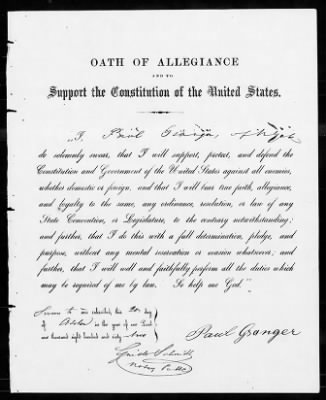 OATH OF ALLEGIANCE
AND TO
Support the Constitution of the United States.
"I, Paul Granger,
do solemnly swear, that I will support, protect, and defend the
Constitution and Government of the United States against all enemies,
whether domestic or foreign, and that I will bear true faith, allegiance,
and loyalty to the same, any ordinance, resolution, or law of any
State Convention, or Legislature, to the contrary notwithstanding;
and further, that I do this with a full determination, pledge, and
purpose, without any mental reservation or evasion whatsoever; and
further, that I will well and faithfully perform all the duties which
may be required of me by law. So help me God."
Sworn to and subscribed, this 20
day
of October in the year of our Lord
one thousand eight hundred and sixty-two
Paul Granger
Notary Public